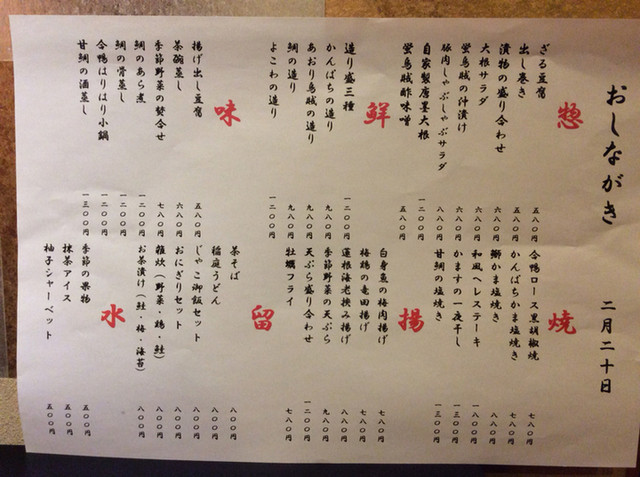 おしながき 二月二十日
惣
ざる豆腐 五八〇円
出し巻き 五八〇円
漬物の盛り合わせ 六八〇円
大根サラダ 六八〇円
蛍烏賊の沖漬け 六八〇円
豚肉しゃぶしゃぶサラダ 八八〇円
自家製唐墨大根 一二〇〇円
蛍烏賊酢味噌 五八〇円
鮮
造り盛三種 一二〇〇円
かんぱちの造り 九八〇円
あおり烏賊の造り 九八〇円
鯛の造り 九八〇円
よこわの造り 一二〇〇円
味
揚げ出し豆腐 五八〇円
茶碗蒸し 六八〇円
季節野菜の焚合せ 七八〇円
鯛のあら煮 一二〇〇円
鯛の骨蒸し 一二〇〇円
合鴨はりはり小鍋 一二〇〇円
甘鯛の酒蒸し 一三〇〇円
焼
合鴨ロース黒胡椒焼 七八〇円
かんぱちかま塩焼き 七八〇円
鰤かま塩焼き 八八〇円
和風ヘレステーキ 一八〇〇円
かますの一夜干し 一三〇〇円
甘鯛の塩焼き 一三〇〇円
揚
白身魚の梅肉揚げ 七八〇円
梅鶏の竜田揚げ 七八〇円
蓮根海老挟み揚げ 八八〇円
季節野菜の天ぷら 九八〇円
天ぷら盛り合わせ 一二〇〇円
牡蠣フライ 七八〇円
留
茶そば 八〇〇円
稲庭うどん 八〇〇円
じゃこ御飯セット 八〇〇円
おにぎりセット 八〇〇円
雑炊（野菜・鶏・鮭） 八〇〇円
お茶漬け（鮭・梅・海苔） 八〇〇円
水
季節の果物 五〇〇円
抹茶アイス 五〇〇円
柚子シャーベット 五〇〇円